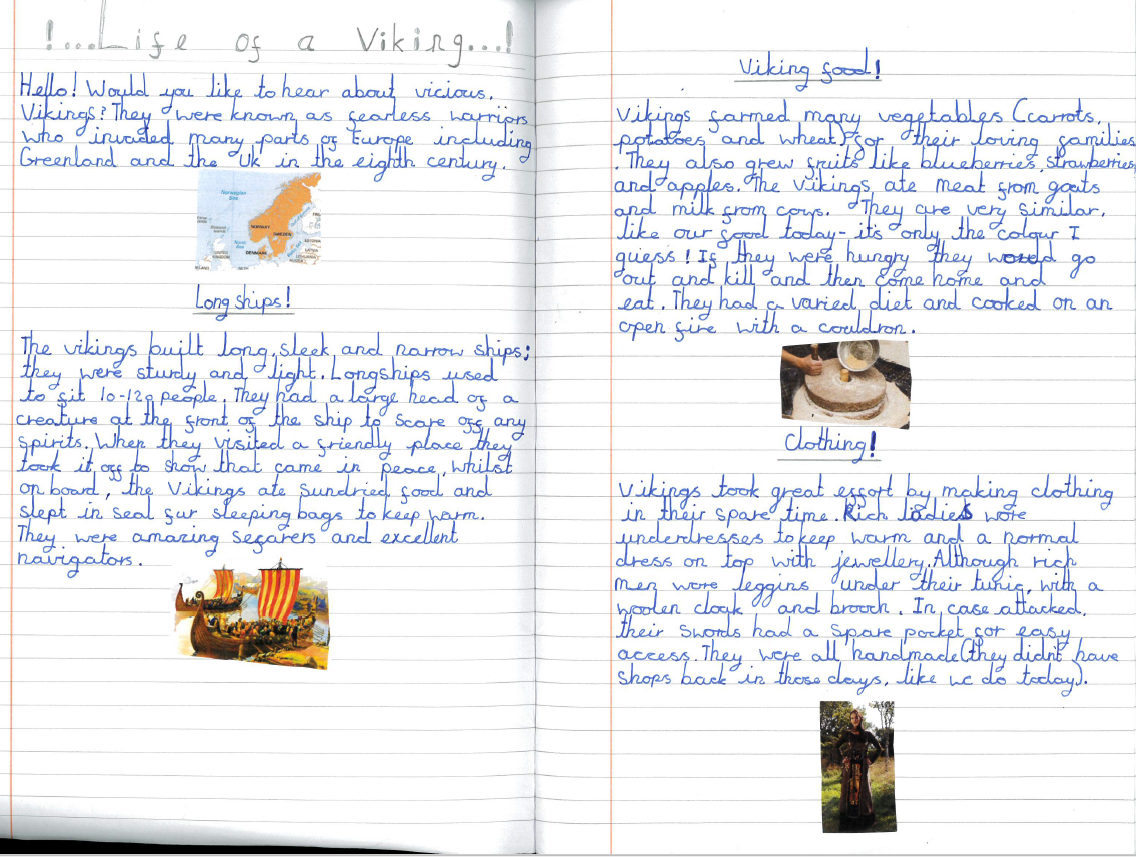 !...Life of a Viking...!
Hello! Would you like to hear about vicious.
Vikings? They were known as fearless warriors
who invaded many parts of Europe including
Greenland and the UK in the eighth century.
Norwegian
Sea
NORWAY
SWEDEN
North
Sea
DENMARK
ESTONIA
LATVIA
LITHUANIA
Long ships!
The vikings built long, sleek and narrow ships;
they were sturdy and light. Longships used
to fit 10-120 people. They had a large head of a
creature at the front of the ship to scare off any
spirits. When they visited a friendly place they
took it off to show that came in peace, whilst
on board, the Vikings ate sundried food and
slept in seal fur sleeping bags to keep warm.
They were amazing sefarers and excellent
navigators.
Viking food!
Vikings farmed many vegetables (carrots,
potatoes and wheat) for their loving families
. They also grew fruits like blueberries, strawberries,
and apples. The Vikings ate meat from goats
and milk from cows. They are very similar,
like our food today- it's only the colour I
guess! If they were hungry they would go
out and kill and then come home and
eat. They had a varied diet and cooked on an
open fire with a couldron.
Clothing!
Vikings took great effort by making clothing
in their spare time. Rich ladies wore
underdresses to keep warm and a normal
dress on top with jewellery. Although rich
men wore leggins under their tunic, with a
woolen cloak and brooch. In case attacked,
their swords had a spare pocket for easy
access. They were all handmade (they didn't have
shops back in those days, like we do today).